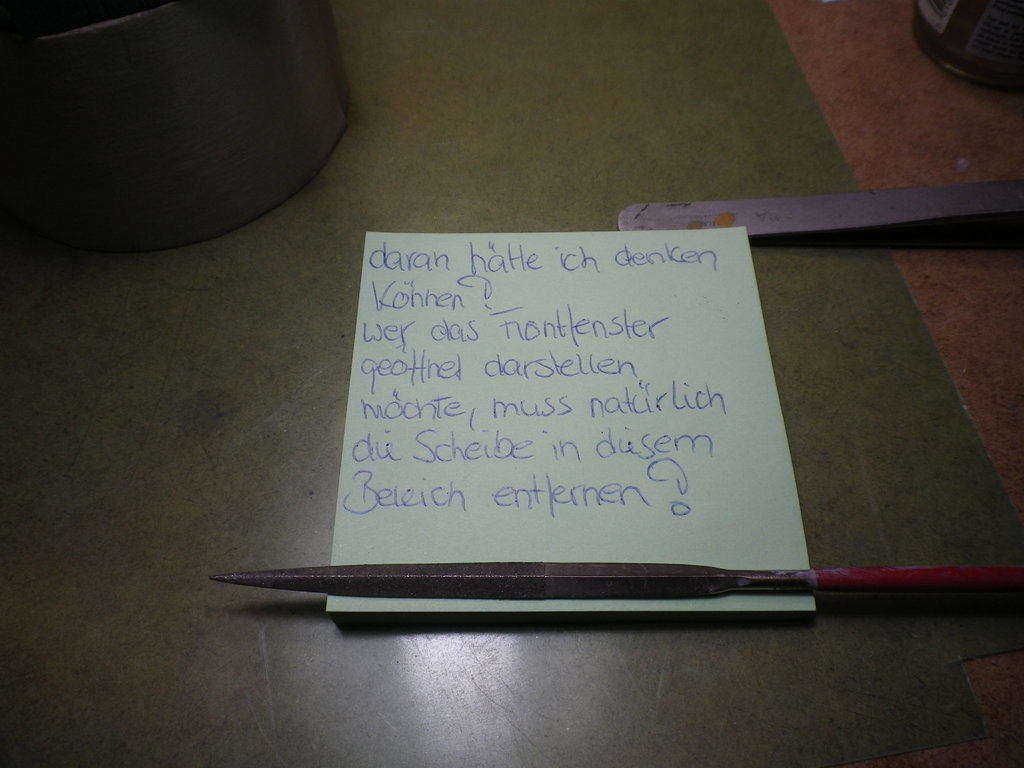 daran hätte ich denken
können?
wer das Frontfenster
geöffnet darstellen
möchte, muss natürlich
die Scheibe in diesem
Bereich entfernen?